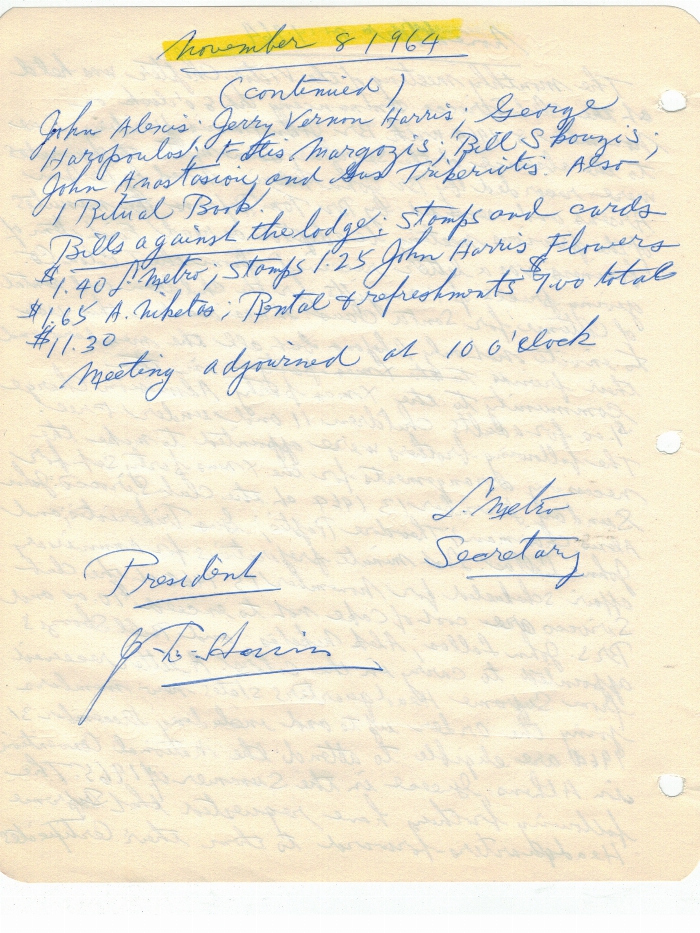 November 8 1964
(continued)
John Alexis; Jerry Vernon Harris; George
Haropoulos; Fotis Margozis; Bill Skouzis;
John Anastasiou and Gus Trikeriotis. Also
1 Ritual Book.
Bills against the lodge: Stamps and cards
$1.40 L. Metro; Stamps 1.25 John Harris Flowers
$1.65 A. Niketas; Rental & refreshments $7.00 total
$11.30
Meeting adjourned at 10 o'clock
L. Metro
Secretary
President
Harris